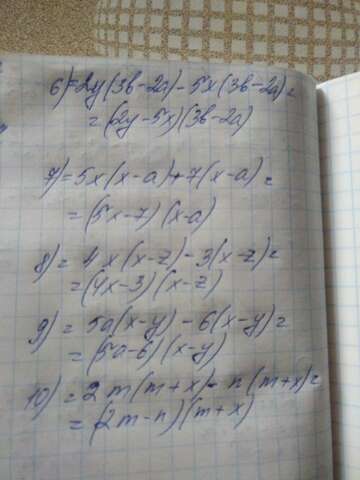 6)=2y(3b-2a)-5x(3b-2a)=
=(2y-5x)(3b-2a)
7)=5x(x-a)+7(x-a)=
=(5x-7)(x-a)
8)= 4x(x-z)-3(x-z)=
=(4x-3)(x-z)
9)= 5a(x-y)-6(x-y)=
=(5a-6)(x-y)
10)=2m(m+x)-n(m+x)=
=(2m-n)(m+x)